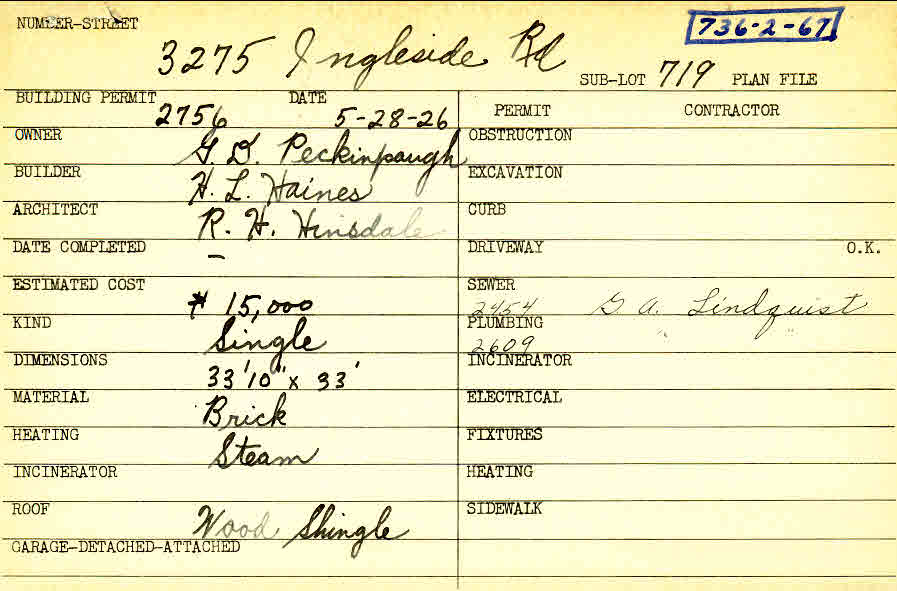 NUMBER-STREET
736-2-67
3275 Ingleside Rd
SUB-LOT 719 PLAN FILE
BUILDING PERMIT DATE
2756 5-28-26
PERMIT CONTRACTOR
OWNER G. D. Peckinpaugh
OBSTRUCTION
BUILDER H. L. Haines
EXCAVATION
ARCHITECT R. H. Hinsdale
CURB
DATE COMPLETED –
DRIVEWAY O.K.
ESTIMATED COST $ 15,000
SEWER
2454 G A. Lindquist
KIND Single
PLUMBING
2609 " "
DIMENSIONS 33'10" x 33'
INCINERATOR
MATERIAL Brick
ELECTRICAL
HEATING Steam
FIXTURES
INCINERATOR
HEATING
ROOF Wood Shingle
SIDEWALK
GARAGE-DETACHED-ATTACHED